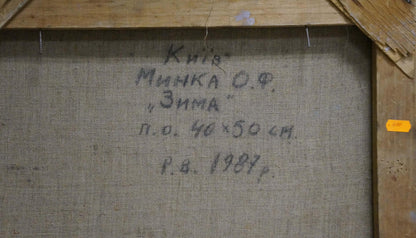 Київ
Минка О.Ф.
„Зима“
п.о. 40×50 см.
Р.В. 1987р.